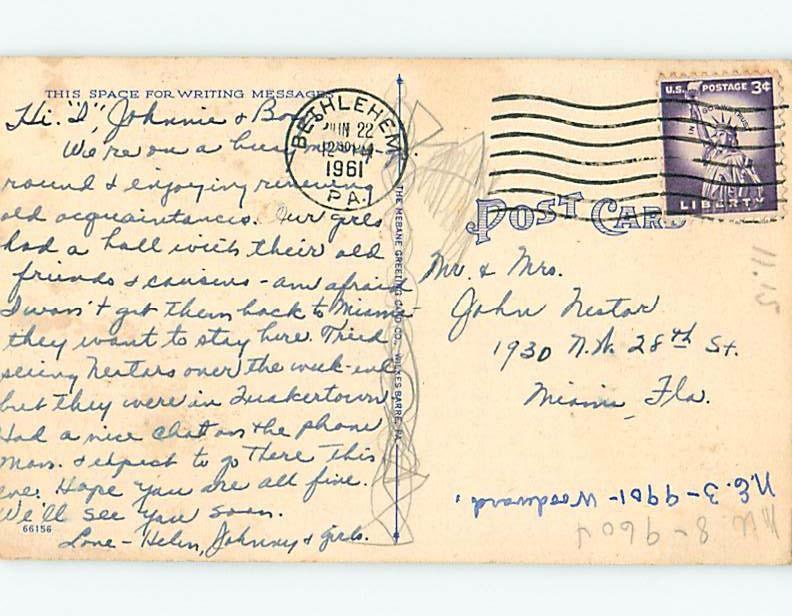 THIS SPACE FOR WRITING MESSAGES
Hi. "D", Johnnie & Bob
We're on a busy
round & enjoying renewing
old acquaintances. Our girls
had a ball with their old
friends & cousins - am afraid
I won't get them back to Miami
they want to stay here. Tried
seeing Nestors over the week-end
but they were in Quakertown
Had a nice chat on the phone
Mon. & expect to go there this
eve. Hope you are all fine.
We'll see you soon.
Love - Helen, Johnny & girls.
66156
THE MEBANE GREETING CARD CO., WILKES BARRE, PA.
BETHLEHEM
JUN 22
1961
PA.
U.S. POSTAGE 3¢
IN GOD WE TRUST
LIBERTY
POST CARD
Mr. & Mrs.
John Nestor
1930 N.W. 28th St.
Miami, Fla.
11.15
N.E. 3-9901- Woodward,
8-9604